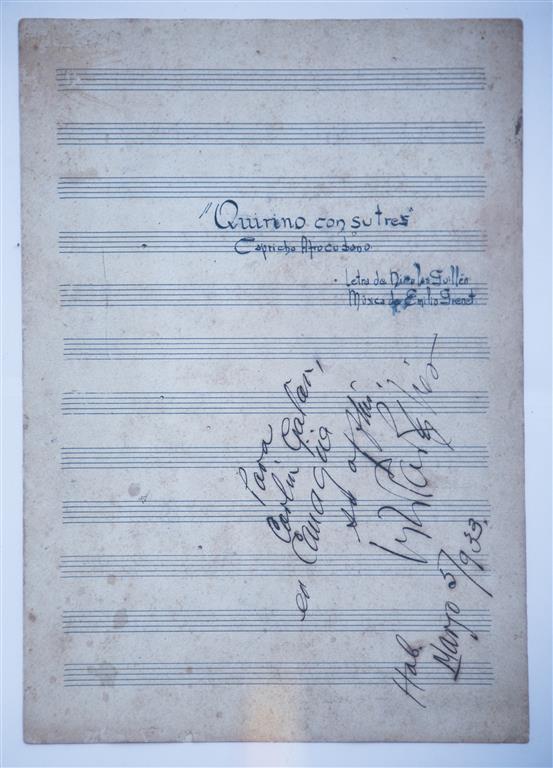 "Quirino con su tres"
Capricho Afrocubano
Letra de Nicolas Guillén
Música de Emilio Grenet
Para
Carlin Galan,
en Camagüey
su
Hab.
Marzo 5/933.